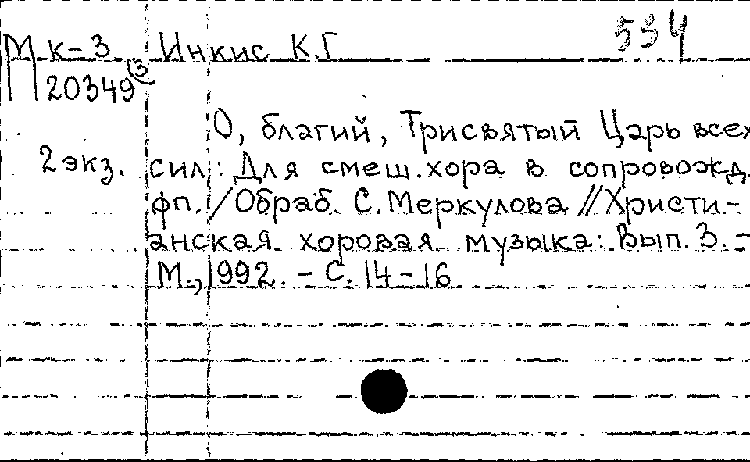 М к-3 Инкис К.Г. 534
П 20349 (3
О, благий, Трисвятый Царь всех
2 экз. сил: Для смеш. хора в сопровожд.
фп. / Обраб. С. Меркулова // Христи-
анская хоровая музыка: Вып. 3. -
М., 1992. - С. 14-16